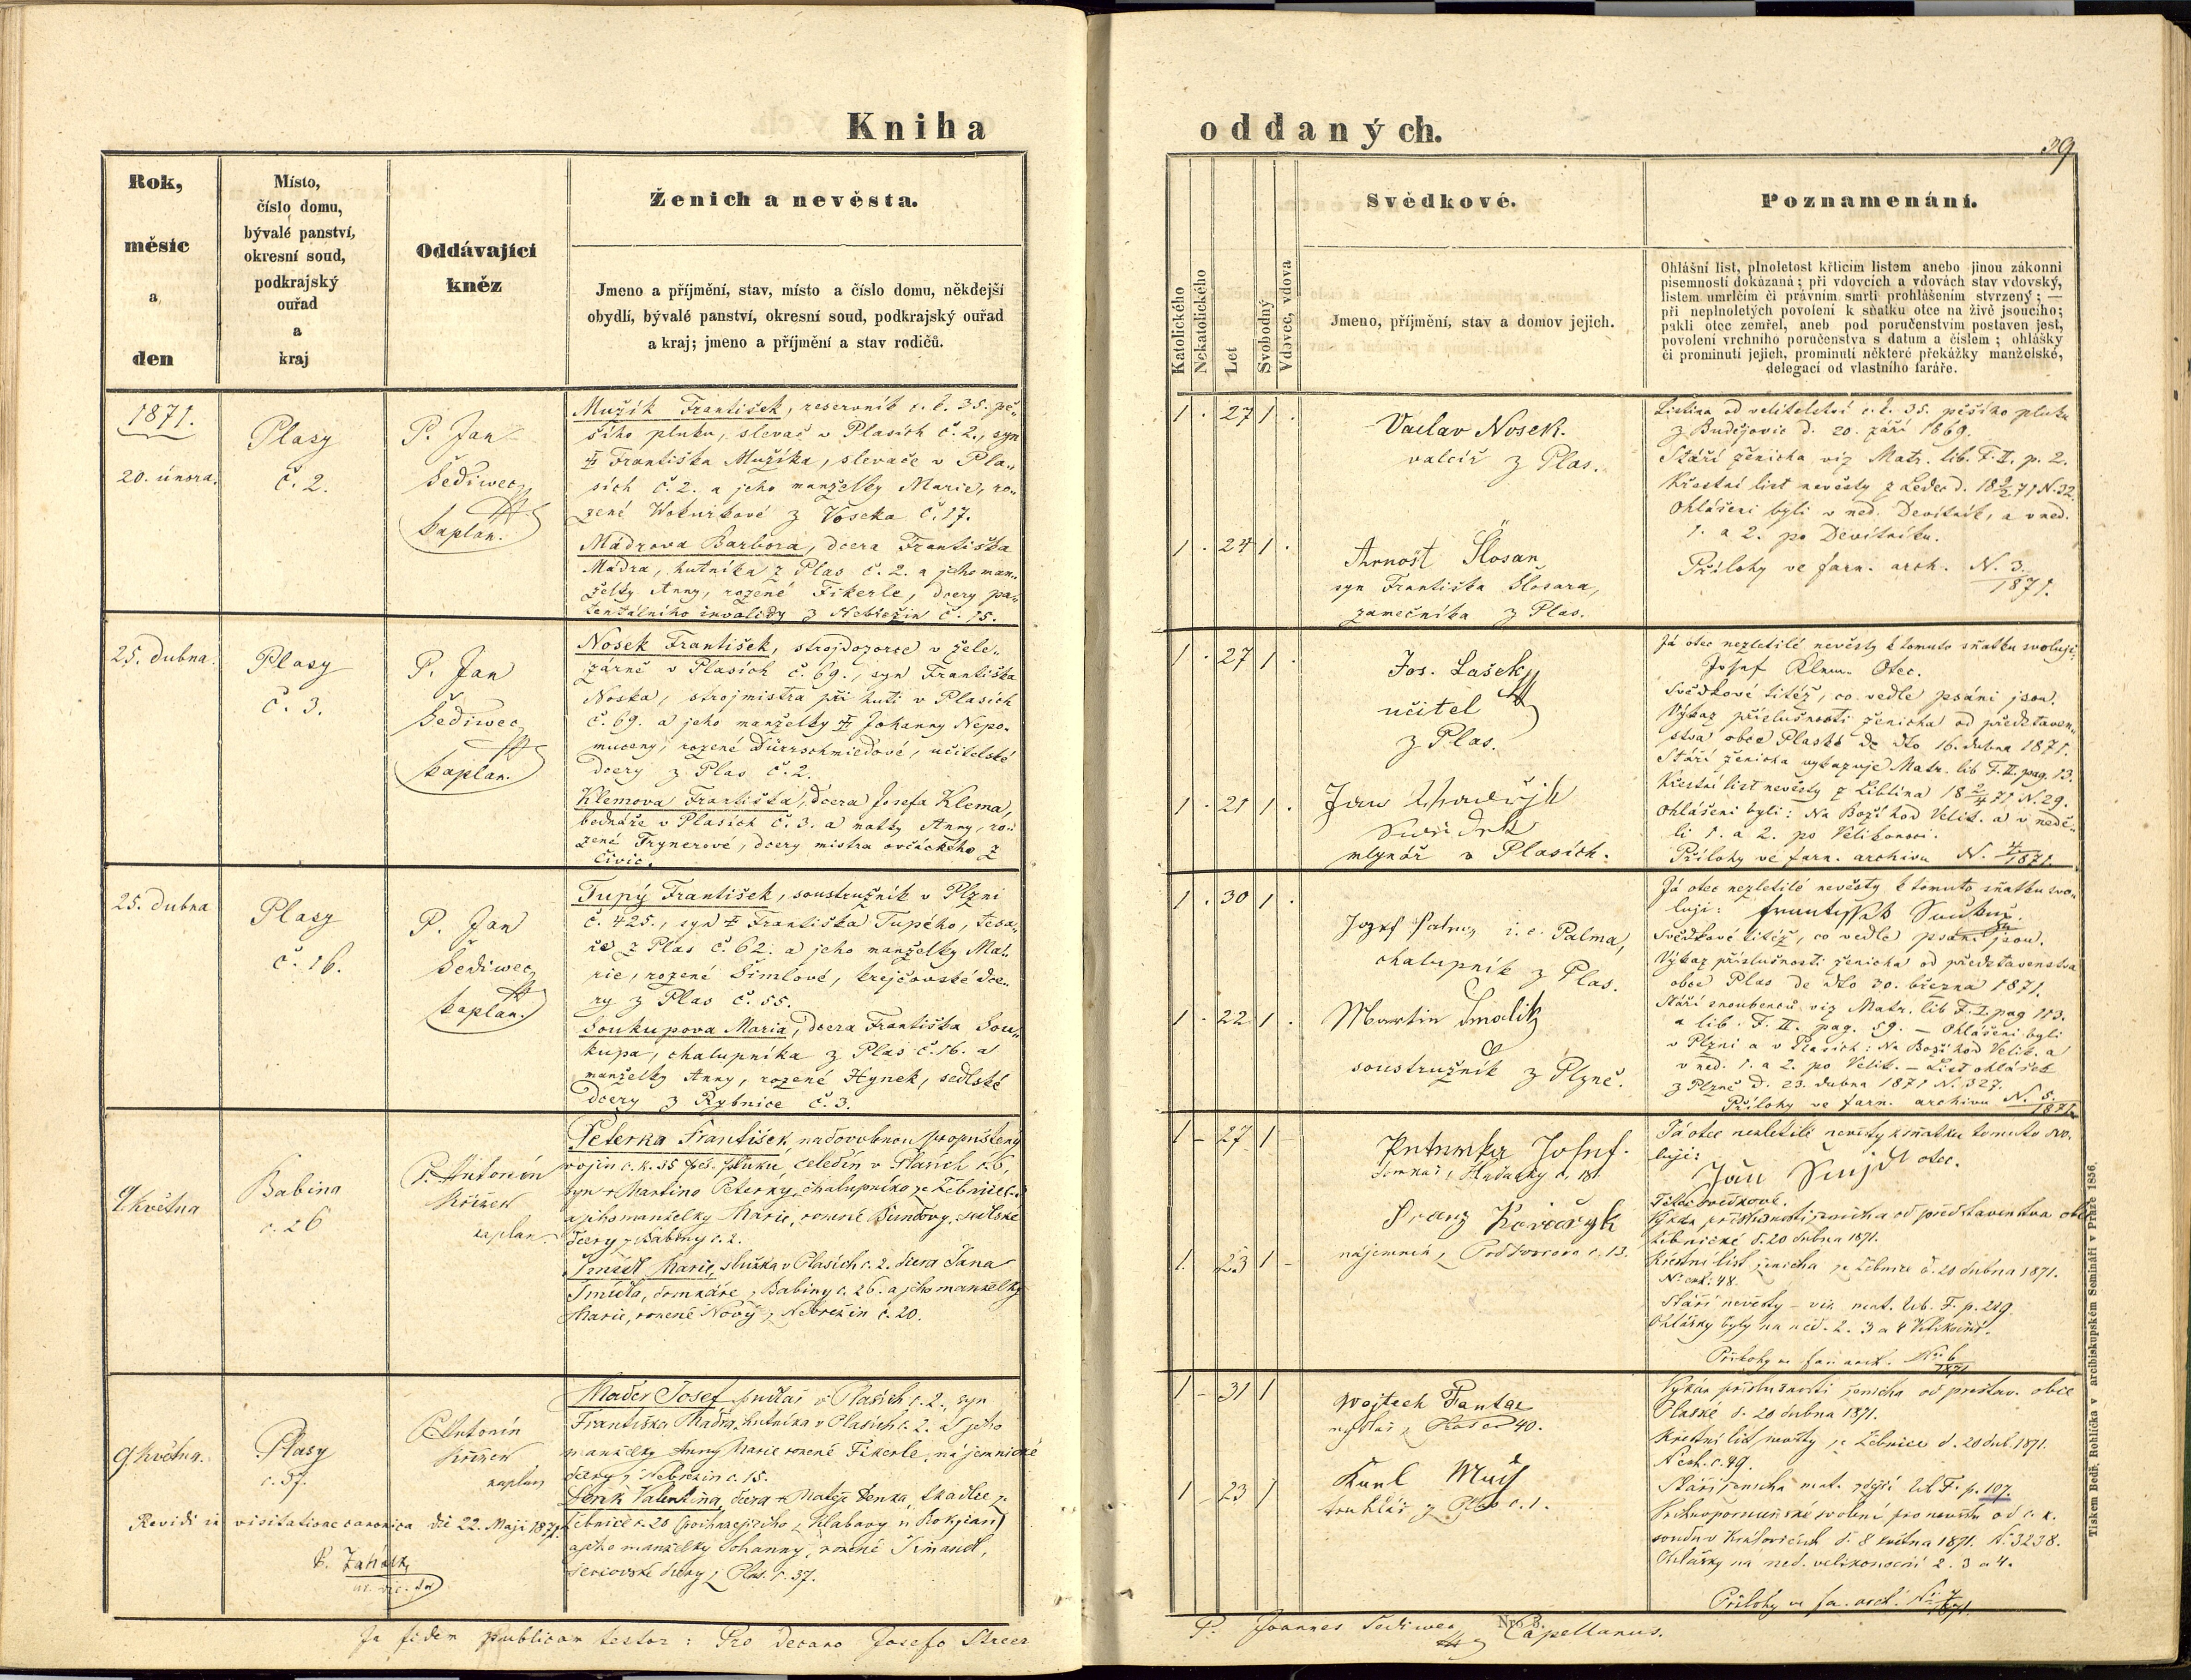 Kniha
Rok,
měsíc
a
den
Místo,
číslo domu,
bývalé panství,
okresní soud,
podkrajský
ouřad
a
kraj
Oddávající
kněz
Ženich a nevěsta.
Jmeno a příjmění, stav, místo a číslo domu, někdejší
obydlí, bývalé panství, okresní soud, podkrajský ouřad
a kraj; jmeno a příjmění a stav rodičů.
1871.
20. února.
Plasy
č. 2.
P. Jan
Šediwec
kaplan.
Mužík František, reservník c. k. 35. pě„
šího pluku, slevač v Plasích č. 2., syn
† Františka Mužíka, slevače v Pla„
sích č. 2. a jeho manželky Marie, ro„
zené Wokurkové z Voseka č. 17.
Mádrova Barbora, dcera Františka
Mádra, hutníka z Plas č. 2. a jeho man„
želky Anny, rozené Fikerle, dcery pa„
tentálního invalidy z Nebřezin č. 15.
25. dubna.
Plasy
č. 3.
P. Jan
Šediwec
kaplan.
Nosek František, strojdozorce v žele„
zárně v Plasích č. 69., syn Františka
Noska, strojmistra při huti v Plasích
č. 69. a jeho manželky † Johanny Nepo„
muceny, rozené Dürrschmiedové, učitelské
dcery z Plas č. 2.
Klemova Františka, dcera Josefa Klema,
bednáře v Plasích č. 3. a matky Anny, ro„
zené Frynerové, dcery mistra ovčáckého z
Čivic.
25. dubna
Plasy
č. 16.
P. Jan
Šediwec
kaplan.
Tupý František, soustružník v Plzni
č. 425., syn † Františka Tupého, tesa„
ře z Plas č. 62. a jeho manželky Ma„
rie, rozené Šimlové, krejčovské dce„
ry z Plas č. 55.
Soukupova Maria, dcera Františka Sou„
kupa, chalupníka z Plas č. 16. a
manželky Anny, rozené Hynek, sedlské
dcery z Rybnice č. 3.
9. května
Babina
č. 26
P. Antonín
Křížek
kaplan
Peterka František, na dovolenou propuštěný
vojín c. k. 35 pěš. pluku, čeledín v Plasích č. 6,
syn † Martina Peterky, chalupníka ze Žebnice
a jeho manželky Marie, rozené Bundovy, sedlské
dcery z Babiny č. 2.
Šmídl Marie, služka v Plasích č. 2. dcera Jana
Šmídla, domkáře z Babiny č. 26. a jeho manželky
Marie, rozené Nový z Nebřezin č. 20.
9. května.
Plasy
č. 37.
P. Antonín
Křížek
kaplan
Mader Josef, pudlař v Plasích č. 2., syn
Františka Mádra, hutníka v Plasích č. 2. a jeho
manželky Anny Marie rozené Fikerle, nájemnické
dcery z Nebřezin č. 15.
Denk Valentina, dcera † Matěje Denka, tkadlce z
Žebnice č. 20 (pocházejícího z Klabavy u Rokycan)
a jeho manželky Johanny, rozené Šimandl,
ševcovské dcery z Plas č. 37.
Revidi in visitatione canonica die 22. Maji 1871.
In fidem publicam testor: Pro decano Josefo Streer
oddaných.
39
Katolického
Nekatolického
Let
Svobodný
Vdovec, vdova
Svědkové.
Jmeno, příjmění, stav a domov jejich.
Poznamenání.
Ohlášní list, plnoletost křticím listem anebo jinou zákonní
písemností dokázaná; při vdovcích a vdovách stav vdovský,
listem umrlčím či právním smrti prohlášením stvrzený; —
při neplnoletých povolení k sňatku otce na živě jsoucího;
pakli otec zemřel, aneb pod poručenstvím postaven jest,
povolení vrchního poručenstva s datum a číslem; ohlášky
či prominutí jejich, prominutí některé překážky manželské,
delegací od vlastního faráře.
1 . 27 1 .
Vaclav Nosek.
valcíř z Plas.
1 . 24 1 .
Arnošt Šlosar,
syn Františka Šlosara,
zámečníka z Plas.
Listina od velitelství c. k. 35. pěšího pluku
z Budějovic d. 20. září 1869.
Stáří ženicha viz Matr. lib. F. II. p. 2.
Křestní list nevěsty z Ledec d. 18 9/2 71 N. 32.
Ohlášeni byli v ned. Devítník, a v ned.
1. a 2. po Devítníku.
Přílohy ve farn. arch. N. 3/1871.
1 . 27 1 .
Jos. Lašek
učitel
z Plas.
1 . 21 1 .
mlynář v Plasích.
Já otec nezletilé nevěsty k tomuto sňatku svoluji:
Josef Klem. Otec.
Svědkové titéž, co vedle psáni jsou.
Výkaz příslušnosti ženicha od představen„
stva obce Plaské de dto 16. dubna 1871.
Stáří ženicha vykazuje Matr. lib. F. II. pag. 13.
Křestní list nevěsty z Liblína 18 2/4 71 N. 29.
Ohlášeni byli: Na Boží hod Velik. a v nedě„
li 1. a 2. po Velikonoci.
Přílohy ve farn. archivu N. 4/1871.
1 . 30 1 .
Jozef Palmy i. e. Palma,
chalupník z Plas.
1 . 22 1 .
Martin Smolik
soustružník z Plzně.
Já otec nezletilé nevěsty k tomuto sňatku svo„
luji: František Soukup.
Svědkové titéž, co vedle psáni jsou.
Výkaz příslušnosti ženicha od představenstva
obce Plas de dto 30. března 1871.
Stáří snoubenců viz Matr. lib. F. I. pag 113.
a lib. F. II. pag. 59. — Ohlášeni byli
v Plzni a v Plasích: Na Boží hod Velik. a
v ned. 1. a 2. po Velik. — List ohlášek
z Plzně d. 23. dubna 1871 N. 327.
Přílohy ve farn. archivu N. 5./1871.
1 – 27 1 –
Peterka Josef.
1 . 23 1 –
Franz Kovařyk
nájemník z Podhorova č. 13.
Já otec nezletilé nevěsty k sňatku tomuto svo„
luji:
Jan Šmidl otec.
Titíž svědkové.
Výkaz příslušnosti ženicha od představenstva obce
Žebnické d. 20 dubna 1871.
Křestní list ženicha ze Žebnice d. 20 dubna 1871.
N. exh. 48.
Stáří nevěsty – viz mat. lib. F. p. 219.
Ohlášky byly na ned. 2. 3 a 4 Velikonoč.
Přílohy ve far. arch. Nr. 6/1871
1 – 31 1
Wojtech Fantar
z Plas č. 40.
1 – 23 1
Karl
truhlář z Plas č. 1.
Výkaz příslušnosti ženicha od představ. obce
Plaské d. 20 dubna 1871.
Křestní list nevěsty ze Žebnice d. 20 dub. 1871.
N. exh. č. 49.
Stáří ženicha mat. zdejší lib. F. p. 107.
Vrchnoporučenské svolení pro nevěstu od c. k.
soudu v Kralovicích d. 8 května 1871. N. 3238.
Ohlášky na ned. velikonoční 2. 3 a 4.
Přílohy ve fa. arch. Nr. 7/1871.
P. Joannes Sediwec Capellanus.
Nro. 3.
Tiskem Bedř. Rohlíčka v arcibiskupském Semináři v Praze 1856.